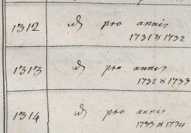 1312 id. pro annis
1731 & 1732
1313 id. pro annis
1732 & 1733
1314 id. pro annis
1733 & 1734